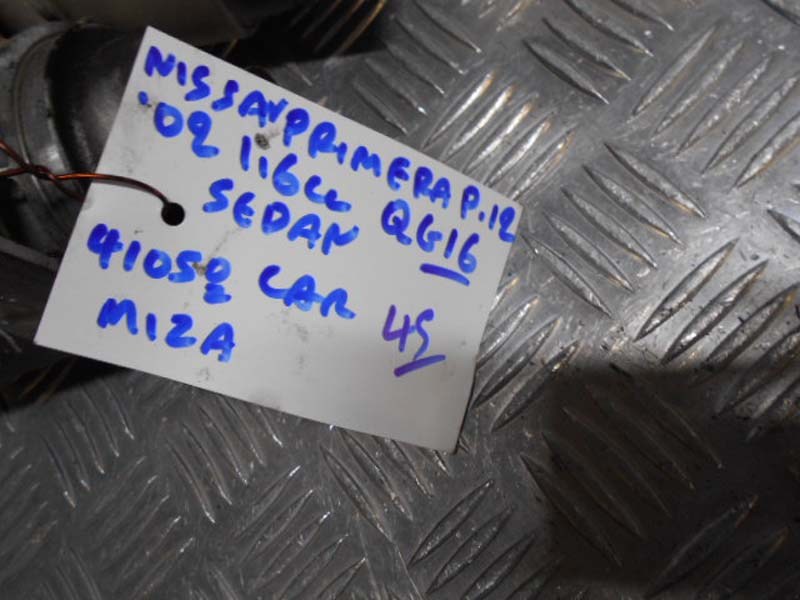 NISSAN PRIMERA P.12
'02 1.6cc QG16
SEDAN
41052 CAR
MIZA 45